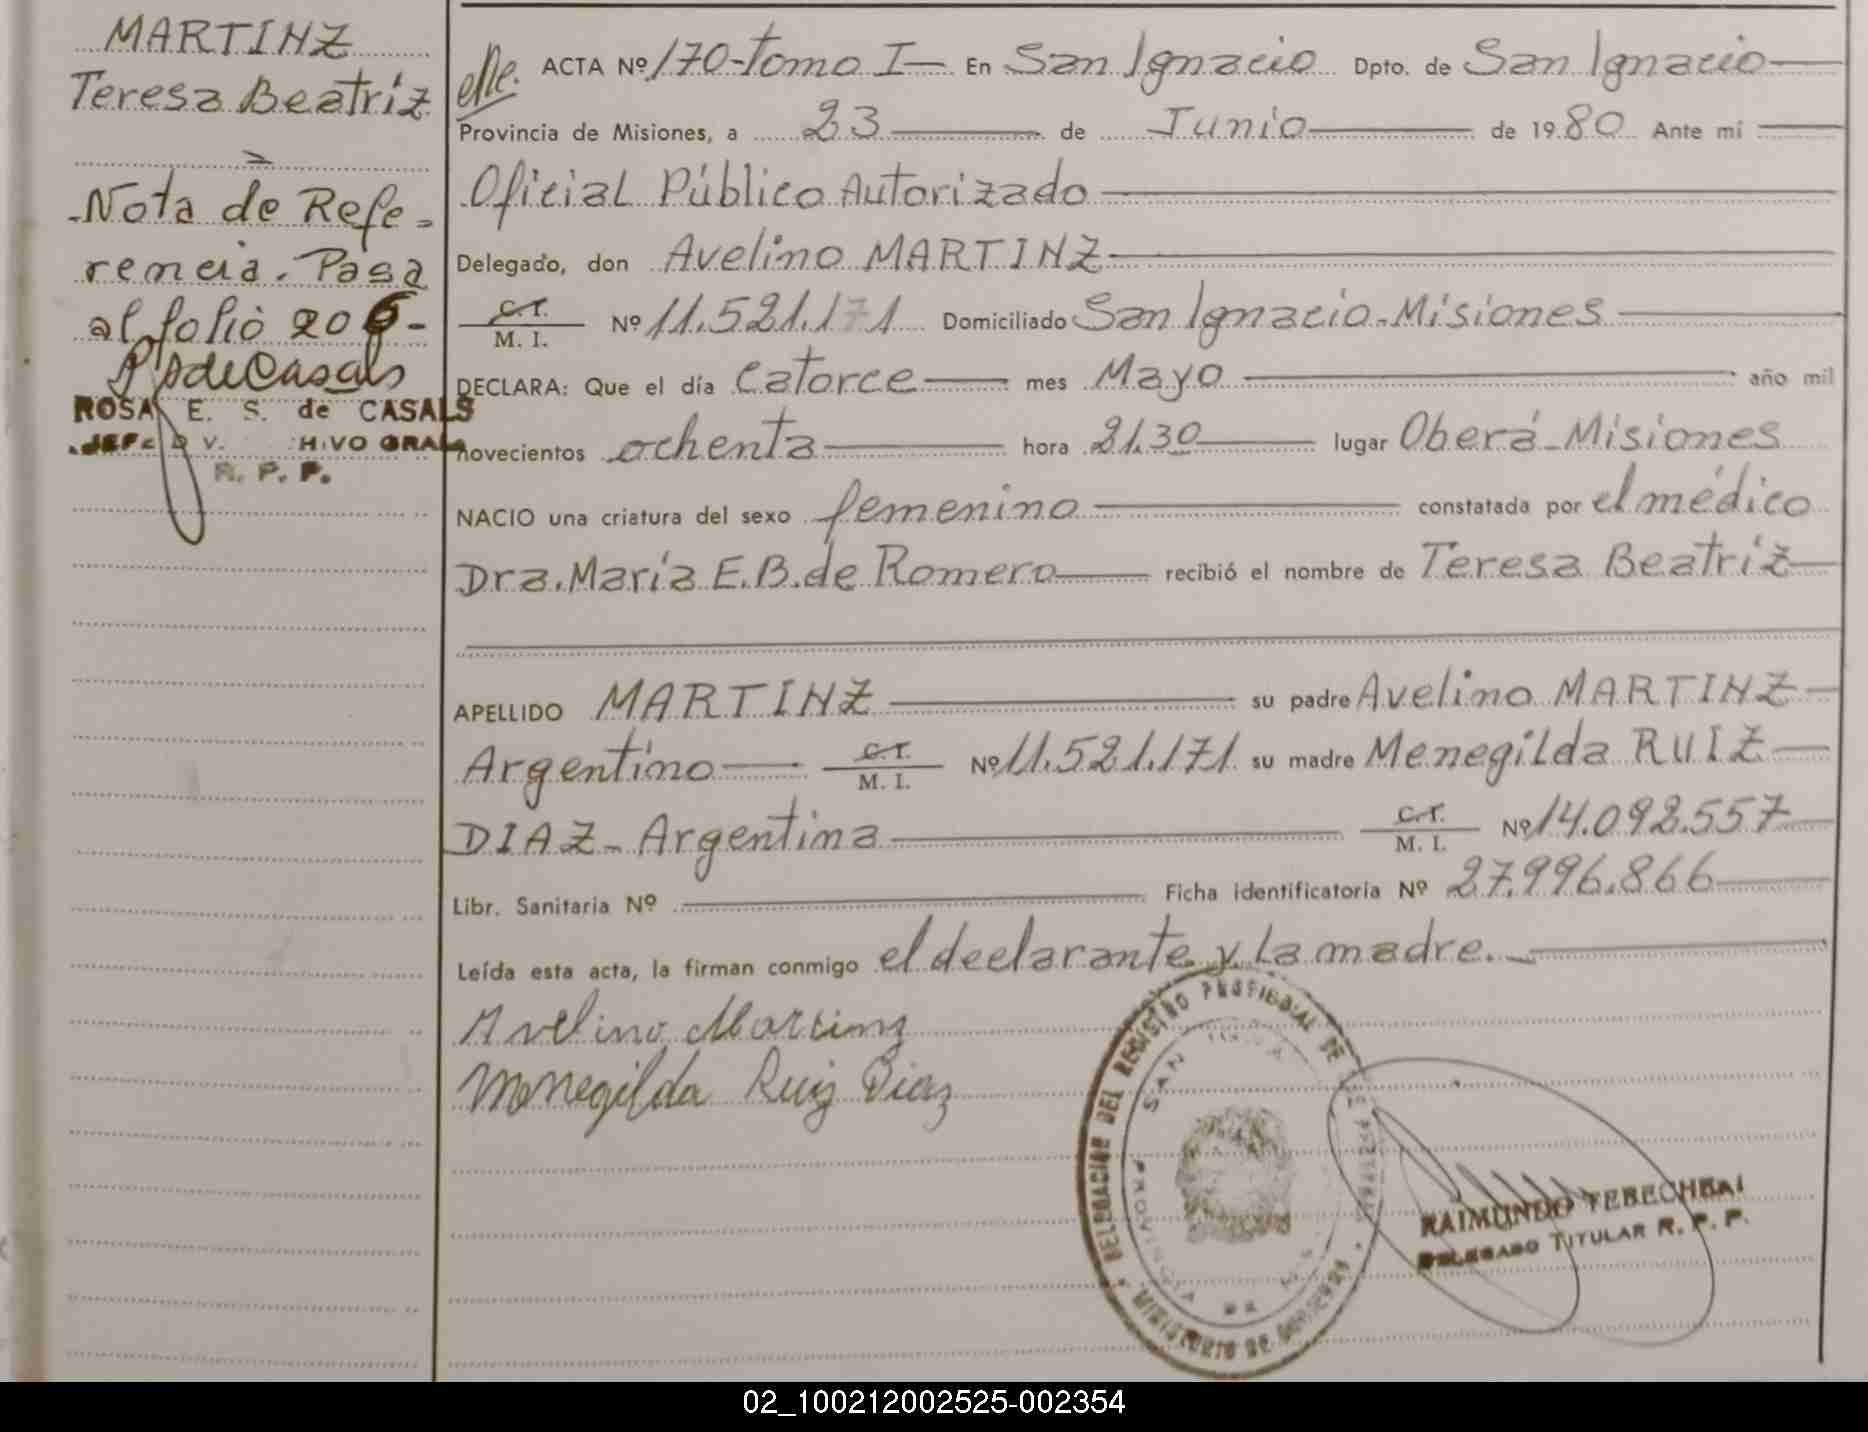 MARTINZ
Teresa Beatriz
Nota de Refe-
rencia. Pasa
al folio 206-
ROSA E. S. de CASALS
R. P. P.
ACTA Nº 170-Tomo I— En San Ignacio Dpto. de San Ignacio
Provincia de Misiones, a 23 de Junio de 1980 Ante mí
Oficial Público Autorizado
Delegado, don Avelino MARTINZ
C.I. M. I. Nº 11.521.171 Domiciliado San Ignacio-Misiones
DECLARA: Que el día Catorce mes Mayo año mil
novecientos ochenta hora 21.30 lugar Oberá-Misiones
NACIO una criatura del sexo femenino constatada por el médico
Dra. María E.B. de Romero recibió el nombre de Teresa Beatriz
APELLIDO MARTINZ su padre Avelino MARTINZ
Argentino C.I. M. I. Nº 11.521.171 su madre Menegilda RUIZ
DIAZ- Argentina C.I. M. I. Nº 14.092.557
Libr. Sanitaria Nº Ficha identificatoria Nº 27.996.866
Leída esta acta, la firman conmigo el declarante y la madre.
Avelino Martinz
Menegilda Ruiz Diaz
DELEGACION DEL REGISTRO PROVINCIAL DE LAS PERSONAS
MINISTERIO DE GOBIERNO
SAN
PROVINCIA DE MIS
RAIMUNDO
DELEGADO TITULAR R. P. P.
02_100212002525-002354